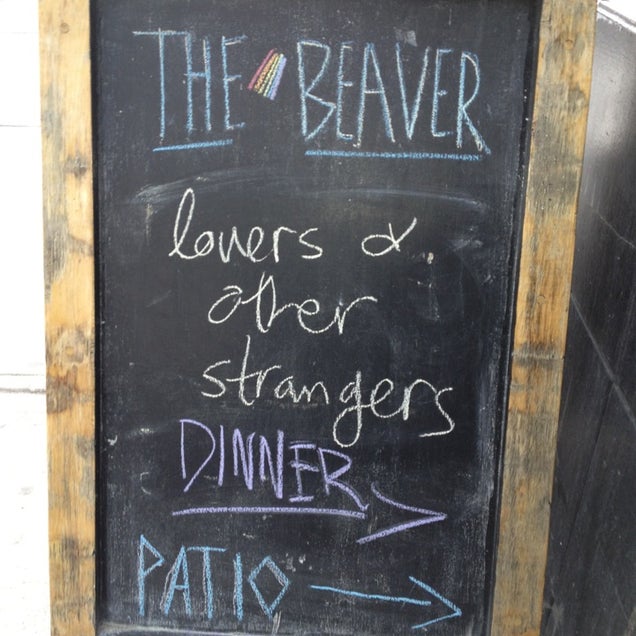 THE BEAVER
lovers &
other
strangers
DINNER
PATIO